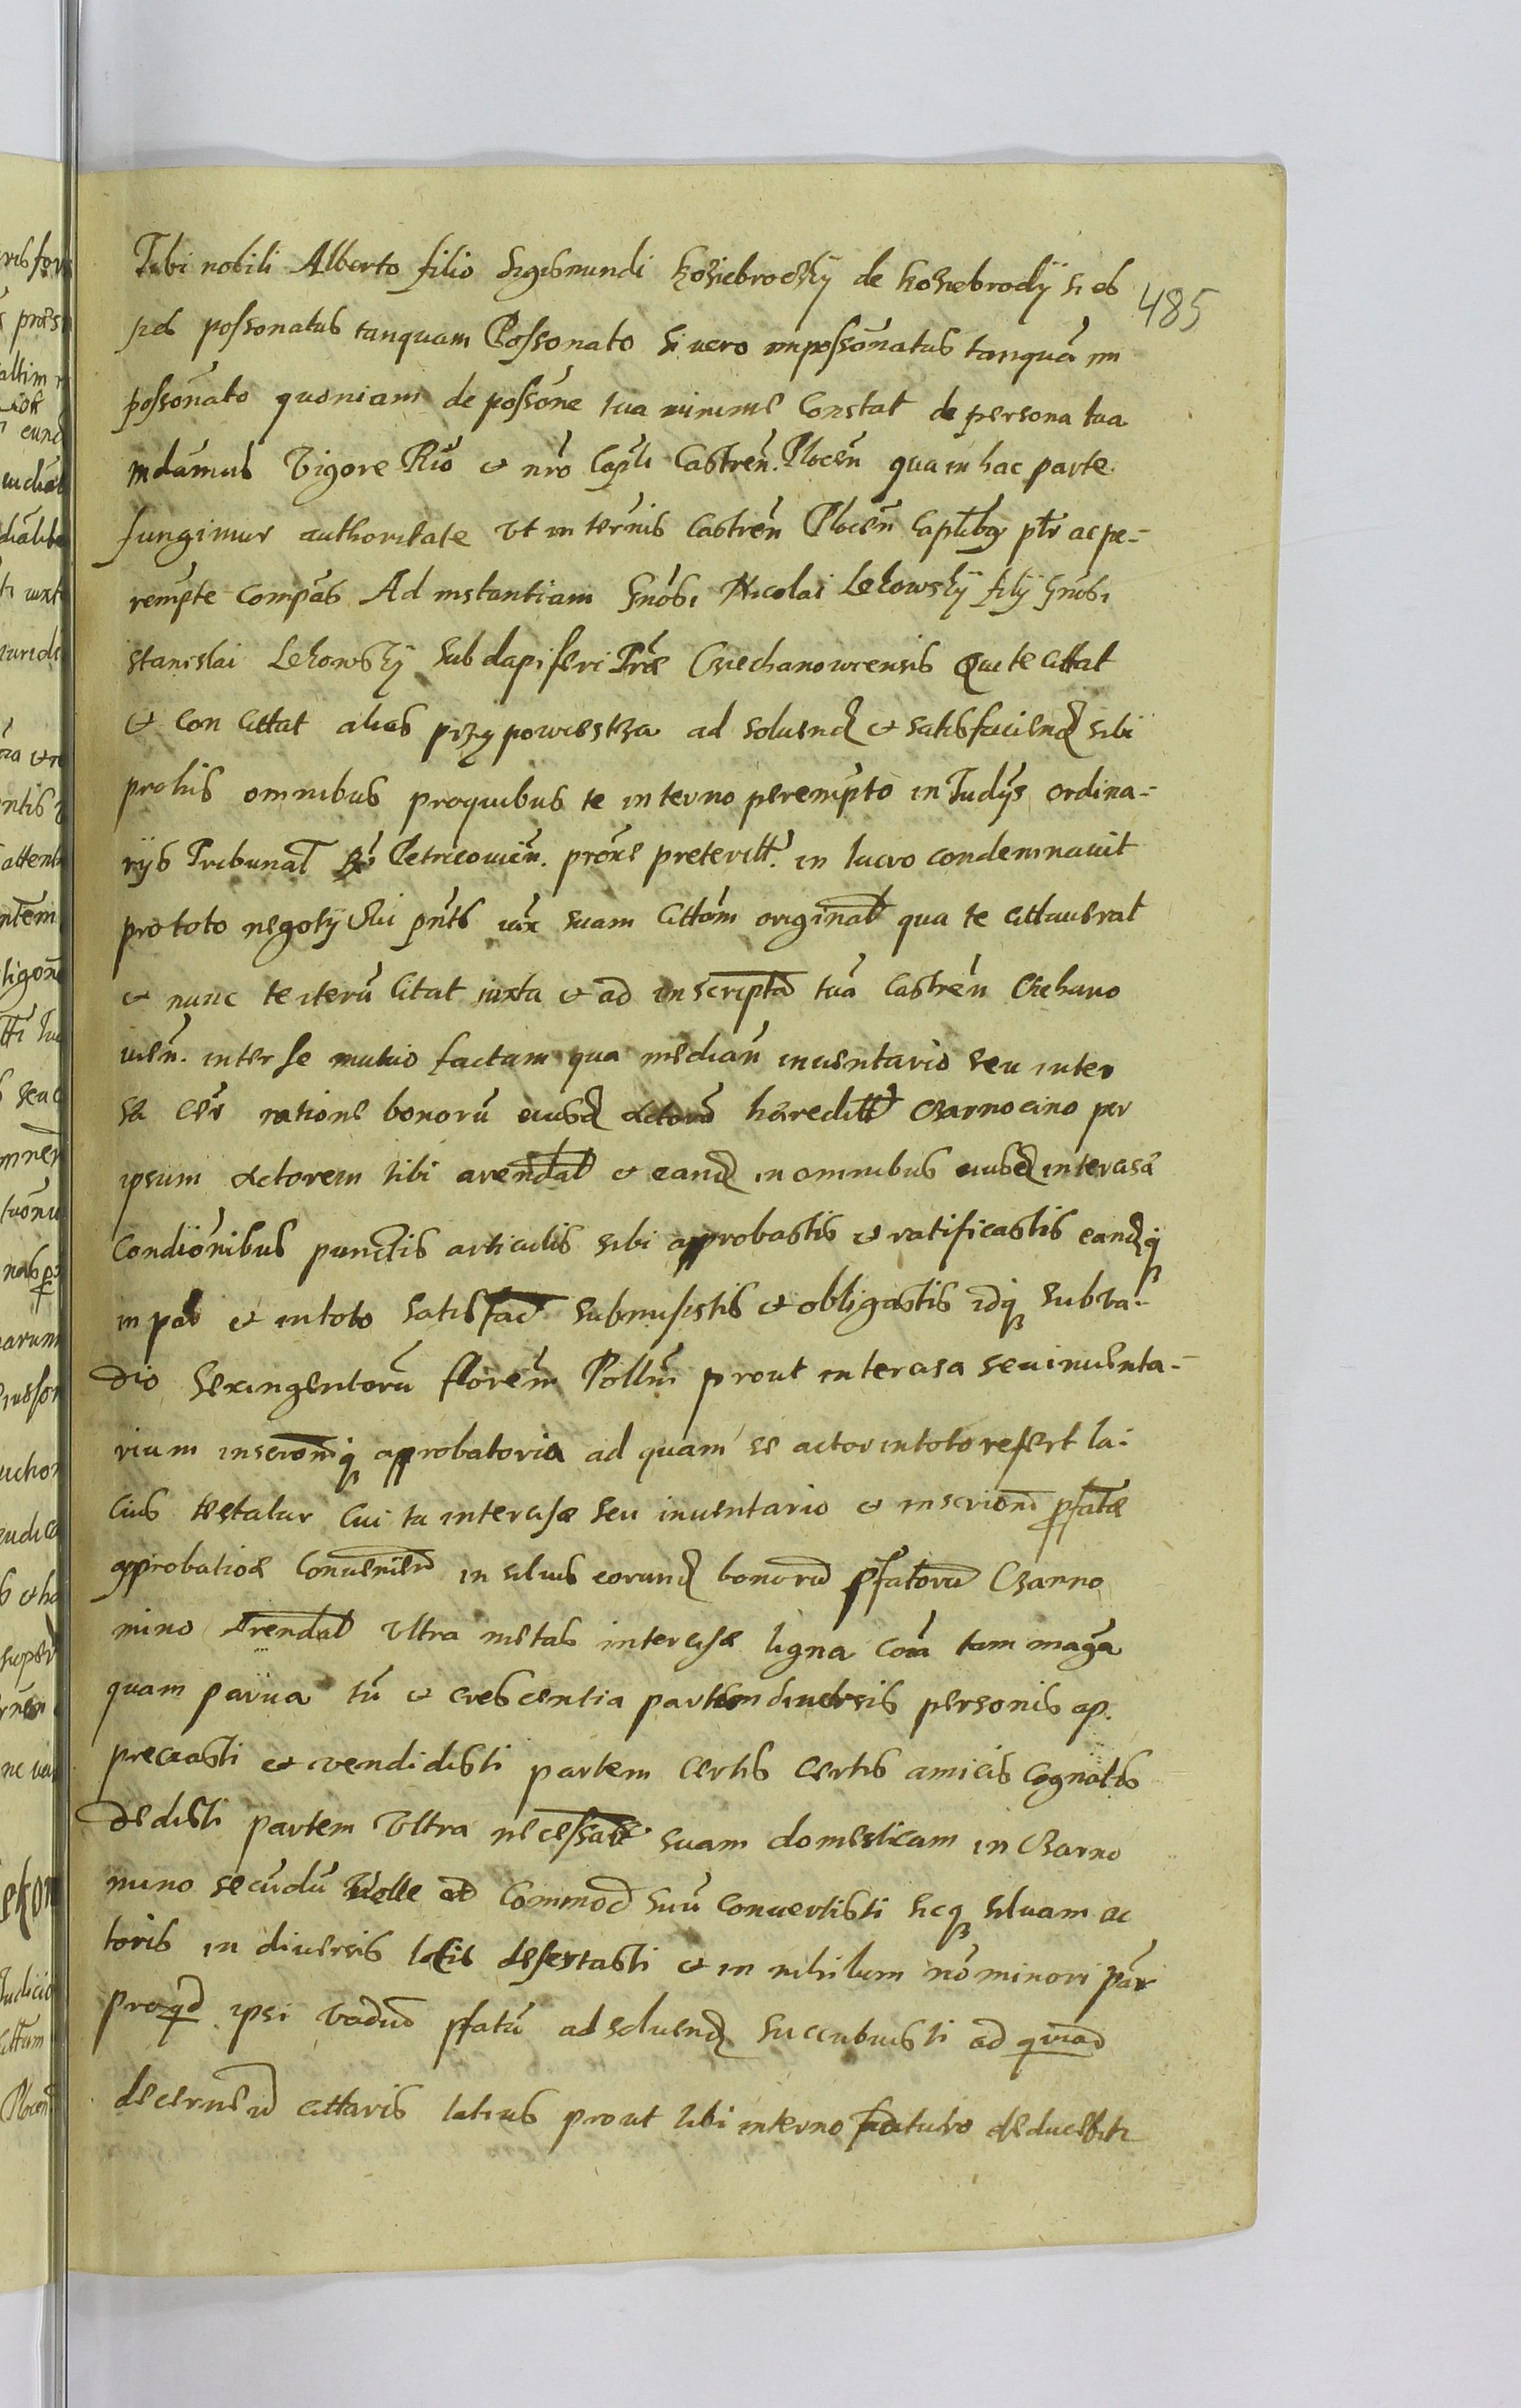 Tibi nobili Alberto filio Sigismundi Kosiebroczky de Kosiebrody si es
485
sis possonatus tanquam Possonato si vero impossonatus tanqua im
possonato quoniam de possone tua minime Constat de persona tua
mdamus Vigore Rio et nro Capli Castren. Plocen qua in hac parte
fungimur authoritate Vt in ternis Castren Plocen Capłlbg ptr ac pe-
rempte Compas Ad instantiam Gnosi Nicolai Lekowsky filÿ Gnosi
Stanislai Lekowsky Subdapiferi Trae Cziechanowiensis Qui te cittat
et Con Cittat alias przypowiestza ad soluend et satisfaciend sibi
pro his omnibus pro quibus te in terno perempto in Judÿs ordina-
rÿs Tribunal Petricouien. proxe preteritt. in lucro condemnauit
pro toto negotÿ sui pnts iux suam Cittam original qua te cittauerat
et nunc te iteru Citat iuxta et ad inscripta tua Castren Ciehano
uien. inter se mutuo factam qua median inuentario seu interci
sa ratione bonoru eiusd Actoro haereditt Czarnocino per
ipsum Actorem tibi arendat et eand in omnibus eiusd intercisa
Condionibus punctis articulis sibi approbastis et ratificastis eandq
in pte et in toto satisfac submisistis et obligastis idq sub va-
dio Sexingentoru floren Pollm prout intercisa seu inuenta-
rium inscromq approbatoria ad quam se actor in toto refert la-
cius testatur Cui tu intercisae seu inuentario et inscrioni pfatae
approbatioe Conuenien in siluis eorund bonoru pfatoru Czarno
mino Arendat Vltra metas intercisae ligna Coia tam magna
quam parua tu et crescentia partem diuersis personis ap.
preciasti et vendidisti partem certis certis amicis Cognatis
dedisti partem Vltra necessat suam domesticam in Czarno
mino secudu Velle et Commod suu conuertisti sicq siluam ac
toris in diuersis locis desertasti et in nihilum no minori par
proqd ipsi vadiu pfatu ad soluend succubuisti ad quiad
decernend cittaris latius prout tibi in terno futuro deducetur